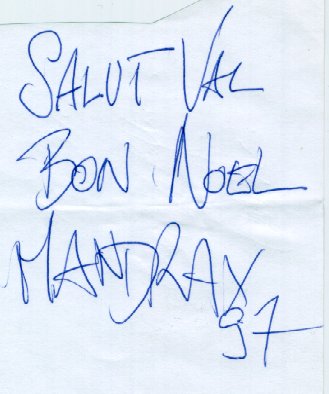 SALUT VAL
BON NOEL
MANDRAX
97